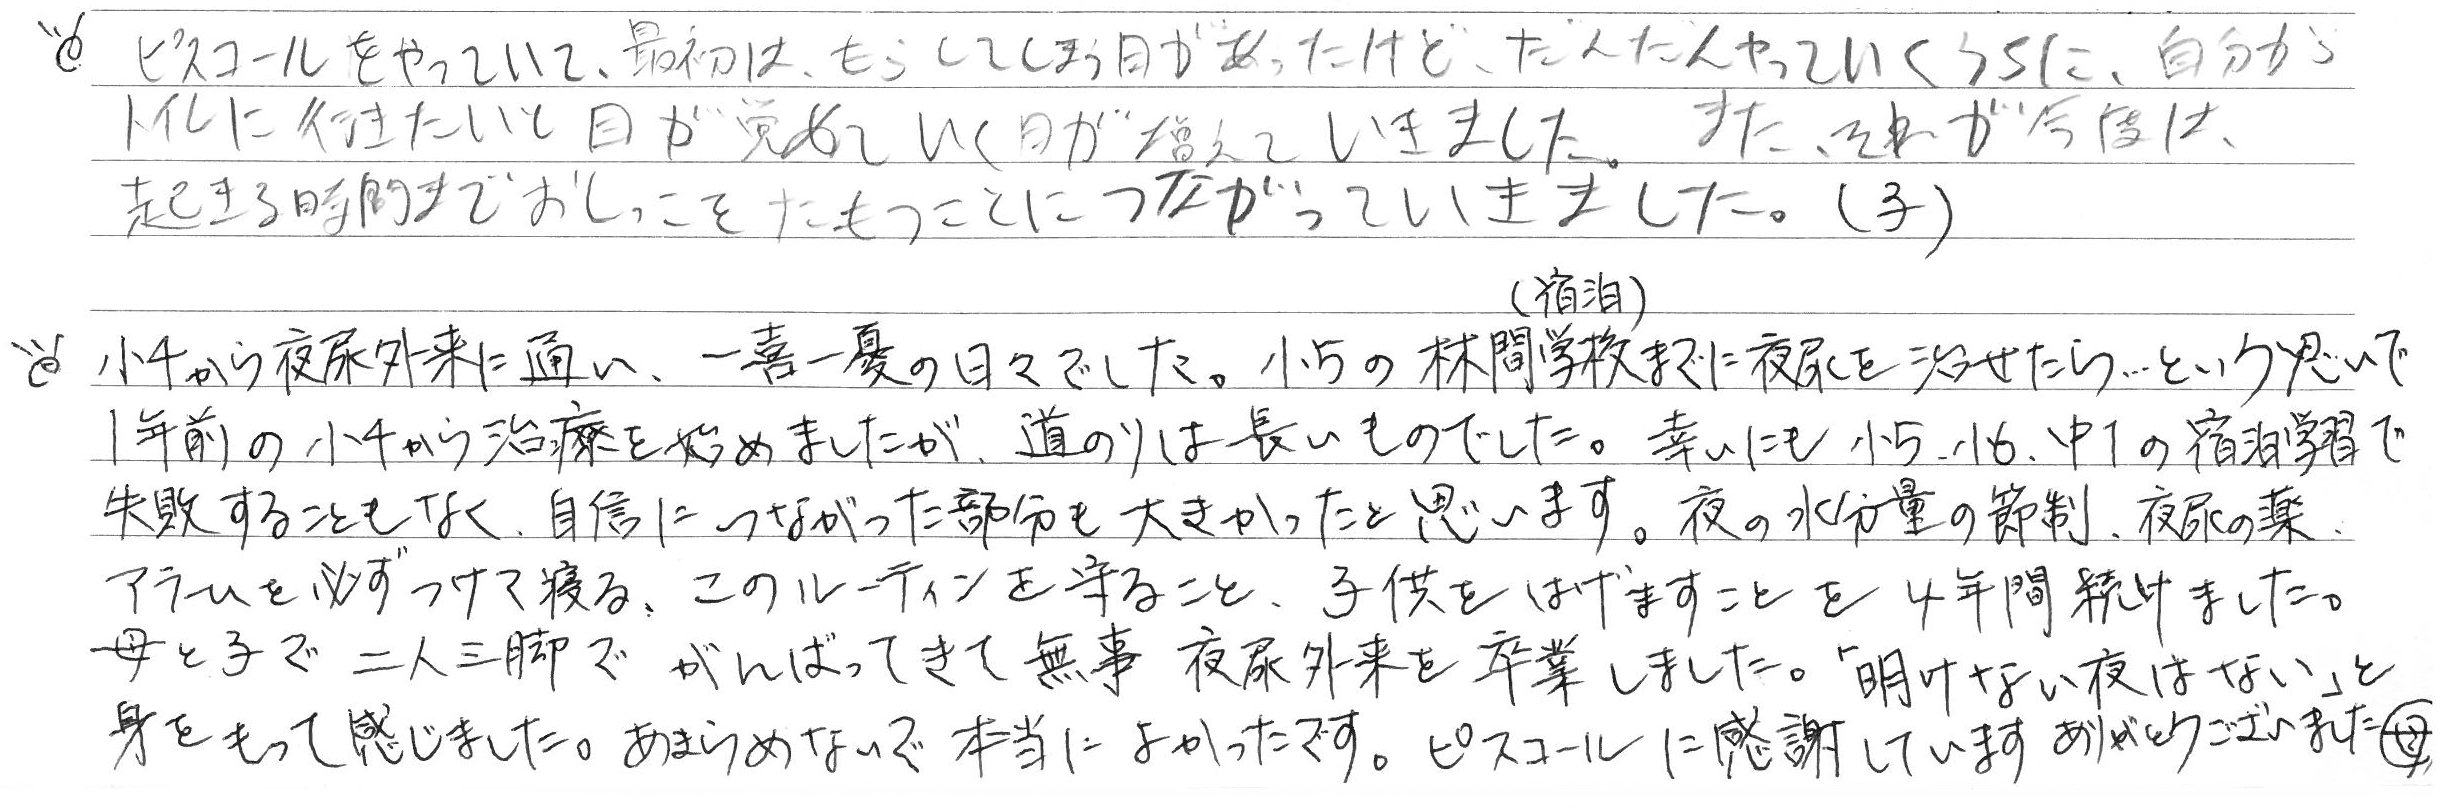 ピスコールをやっていて、最初は、もらしてしまう日があったけど、だんだんやっていくうちに、自分から
トイレに行きたいと目が覚めていく日が増えていきました。また、それが今度は、
起きる時間までおしっこをたもつことにつながっていきました。(子)
(宿泊)
小4から夜尿外来に通い、一喜一憂の日々でした。小5の林間学校までに夜尿を治せたら…という思いで
1年前の小4から治療を始めましたが、道のりは長いものでした。幸いにも小5、小6、中1の宿泊学習で
失敗することもなく、自信につながった部分も大きかったと思います。夜の水分量の節制、夜尿の薬、
アラームを必ずつけて寝る、このルーティンを守ること、子供をはげますことを4年間続けました。
母と子で二人三脚でがんばってきて無事夜尿外来を卒業しました。「明けない夜はない」と
身をもって感じました。あきらめないで本当によかったです。ピスコールに感謝していますありがとうございました母